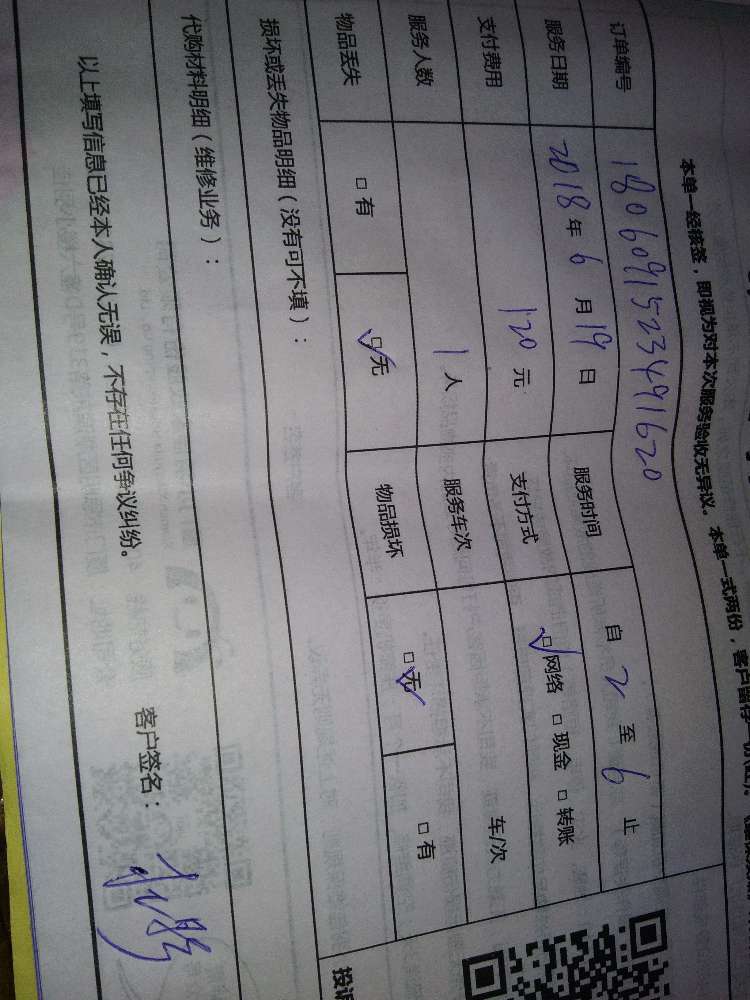 本单一经核签，即视为对本次服务验收无异议。本单一式两份，客户留存一份
订单编号 1806091523491620
服务日期 2018年6月19日 服务时间 自2至6止
支付费用 120元 支付方式 □网络 □现金 □转账
服务人数 1人 服务车次 车/次
物品丢失 □有 □无 物品损坏 □无 □有
损坏或丢失物品明细（没有可不填）：
代购材料明细（维修业务）：
以上填写信息已经本人确认无误，不存在任何争议纠纷。 客户签名：
投诉